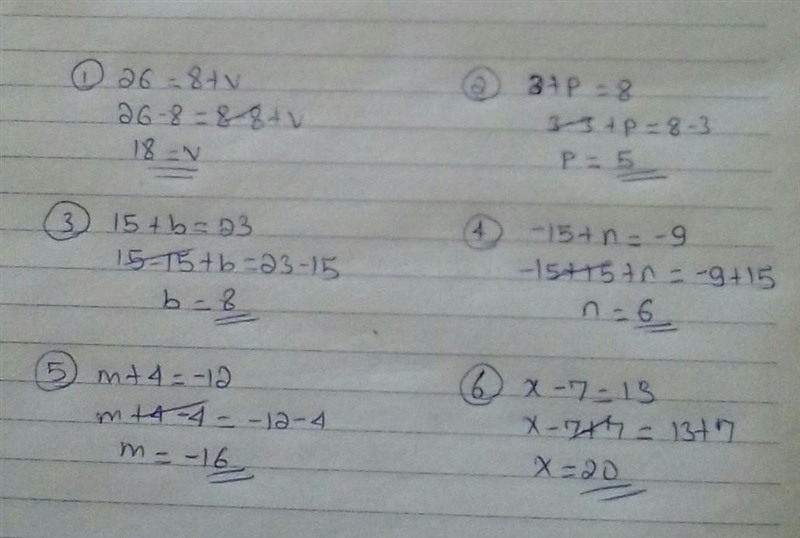 ① 26 = 8+v
26-8 = 8-8+v
18 = v
② 3+P = 8
3-3+P = 8-3
P = 5
③ 15+b = 23
15-15+b = 23-15
b = 8
④ -15+n = -9
-15+15+n = -9+15
n = 6
⑤ m+4 = -12
m+4-4 = -12-4
m = -16
⑥ x-7 = 13
x-7+7 = 13+7
x = 20